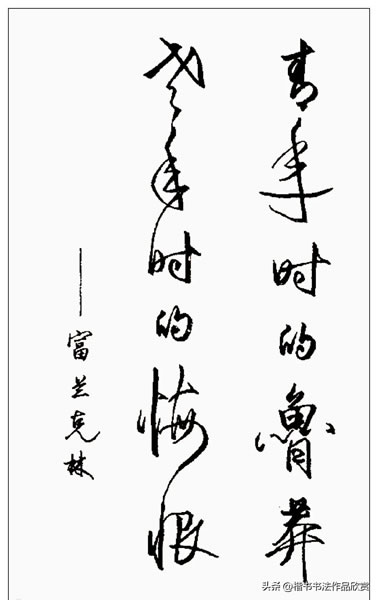 青年时的鲁莽
老年时的悔恨
——富兰克林
头条 @楷书书法作品欣赏